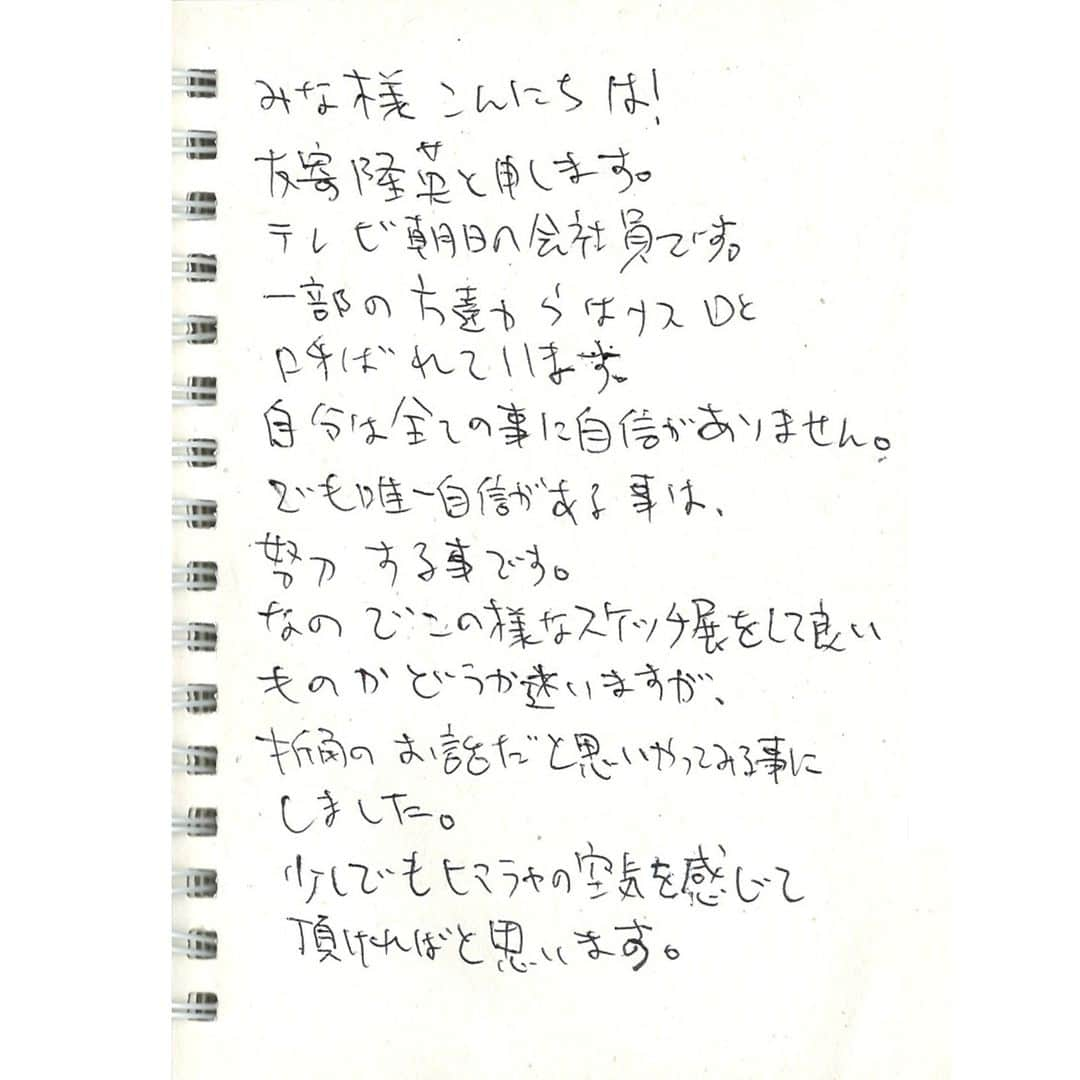 みな様 こんにちは!
友寄隆英と申します。
テレビ朝日の会社員です。
一部の方達からはナスDと
呼ばれています。
自分は全ての事に自信がありません。
でも唯一自信がある事は、
努力する事です。
なのでこの様なスケッチ展をして良い
ものかどうか迷いますが、
折角のお話だと思いやってみる事に
しました。
少しでもヒマラヤの空気を感じて
頂ければと思います。